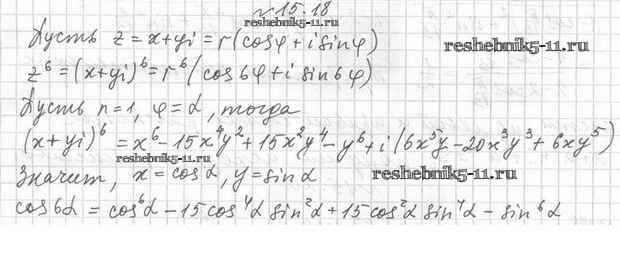 №15.18
reshebnik5-11.ru
Пусть z = x+yi = r(cosφ + i sinφ)
reshebnik5-11.ru
z⁶ = (x+yi)⁶ = r⁶(cos6φ + i sin6φ)
Пусть r=1, φ=α, тогда
(x+yi)⁶ = x⁶ - 15x⁴y² + 15x²y⁴ - y⁶ + i(6x⁵y - 20x³y³ + 6xy⁵)
reshebnik5-11.ru
Значит, x = cosα, y = sinα
reshebnik5-11.ru
cos6α = cos⁶α - 15cos⁴α sin²α + 15cos²α sin⁴α - sin⁶α